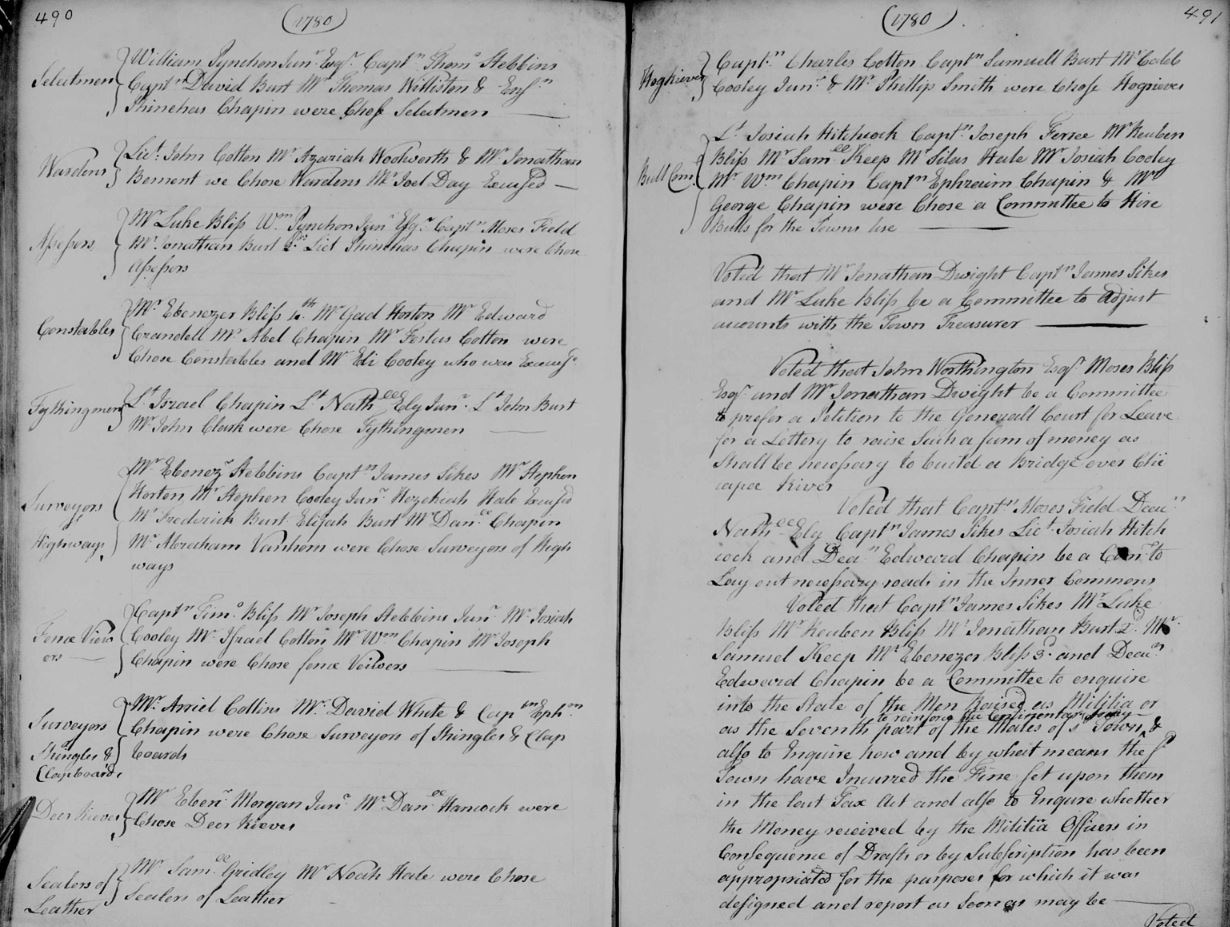 490
(1780)
Selectmen
William Pynchon Junr Esqr. Captn Thoms Stebbins
Captn David Burt Mr Thomas Williston & Ensn
Phinehas Chapin were Chose Selectmen
Wardens
Liet. John Cotton Mr Azariah Woolworth & Mr Jonathan
Bement we Chose Wardens Mr Joel Day Excused
Assessors
Mr Luke Bliss Wm Pynchon Junr Esqr Captn Moses Field
Mr Jonathan Burt & Liet Phinehas Chapin were Chose
Assessors
Constables
Mr Ebenezer Bliss 4th Mr Gad Horton Mr Edward
Crandell Mr Abel Chapin Mr Festus Cotton were
Chose Constables and Mr Eli Cooley who was Excusd
Tythingmen
Lt Israel Chapin Lt Nathell Ely Junr Lt John Burt
Mr John Clark were Chose Tythingmen
Surveyors
Highways
Mr Ebenezr Stebbins Captn James Sikes Mr Stephen
Horton Mr Stephen Cooley Junr Hezekiah Hale Excused
Mr Frederick Burt Elijah Burt Mr Danll Chapin
Mr Abraham Vanhorn were Chose Surveyors of High
ways
Fence View
ers
Captn Timo Bliss Mr Joseph Stebbins Junr Mr Josiah
Cooley Mr Israel Cotton Mr Wm Chapin Mr Joseph
Chapin were Chose fence Veiwers
Surveyors
Shingles &
Clapboards
Mr Ariel Collins Mr David White & Captn Ephm
Chapin were Chose Surveyors of Shingles & Clap
boards
Deer Rieves
Mr Ebenr Morgan Junr Mr Danll Hancock were
Chose Deer Rieves
Sealers of
Leather
Mr Samll Gridley Mr Noah Hale were Chose
Sealers of Leather
491
(1780)
Hogrieves
Captn Charles Cotton Captn Samuell Burt Mr Caleb
Cooley Junr & Mr Phillip Smith were Chose Hogrieves
Bull Com
Lt. Josiah Hitchcock Captn Joseph Ferree Mr Reuben
Bliss Mr Samll Keep Mr Silas Hale Mr Josiah Cooley
Mr Wm Chapin Captn Ephraim Chapin & Mr
George Chapin were Chose a Committee to Hire
Bulls for the Towns Use
Voted that Mr Jonathan Dwight Captn James Sikes
and Mr Luke Bliss be a Committee to Adjust
accounts with the Town Treasurer
Voted that John Worthington Esqr Moses Bliss
Esqr and Mr Jonathan Dwight be a Committee
to prefer a Petition to the Generall Court for Leave
for a Lottery to raise Such a sum of money as
Shall be necessary to build a Bridge over Chi
capee River
Voted that Captn Moses Field Deacn
Nathll Ely Captn James Sikes Liet Josiah Hitch
cock and Deacn Edward Chapin be a Comt to
Lay out necessary roads in the Inner Commons
Voted that Captn James Sikes Mr Luke
Bliss Mr Reuben Bliss Mr Jonathan Burt 2d Mr
Samuel Keep Mr Ebenezer Bliss 3d and Deacn
Edward Chapin be a Committee to enquire
into the State of the Men Raised as Militia or
to reinforce the Continentar Army
as the Seventh part of the Males of sd Town &
also to Inquire how and by what means the sd
Town have Incurred the Fine set upon them
in the last Tax Act and also to Enquire whether
the Money received by the Militia Officers in
Consequence of Drafts or by Subscription has been
appropriated for the purposes for which it was
designed and report as Soon as may be
Voted